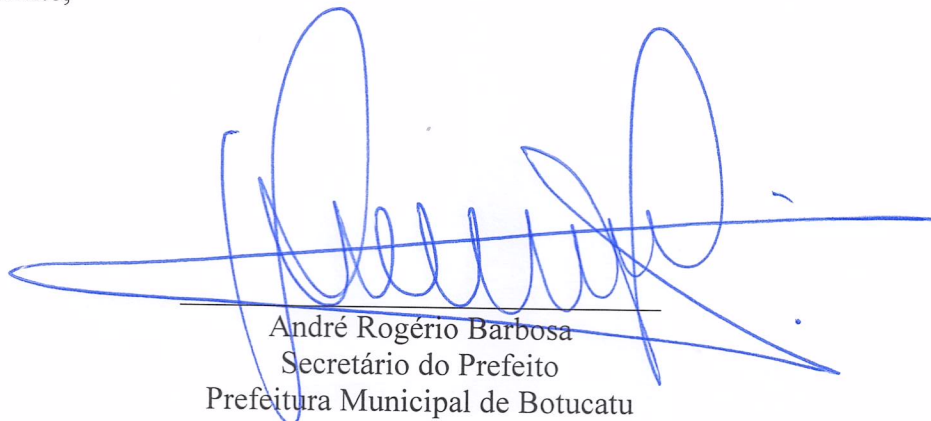 André Rogério Barbosa
Secretário do Prefeito
Prefeitura Municipal de Botucatu